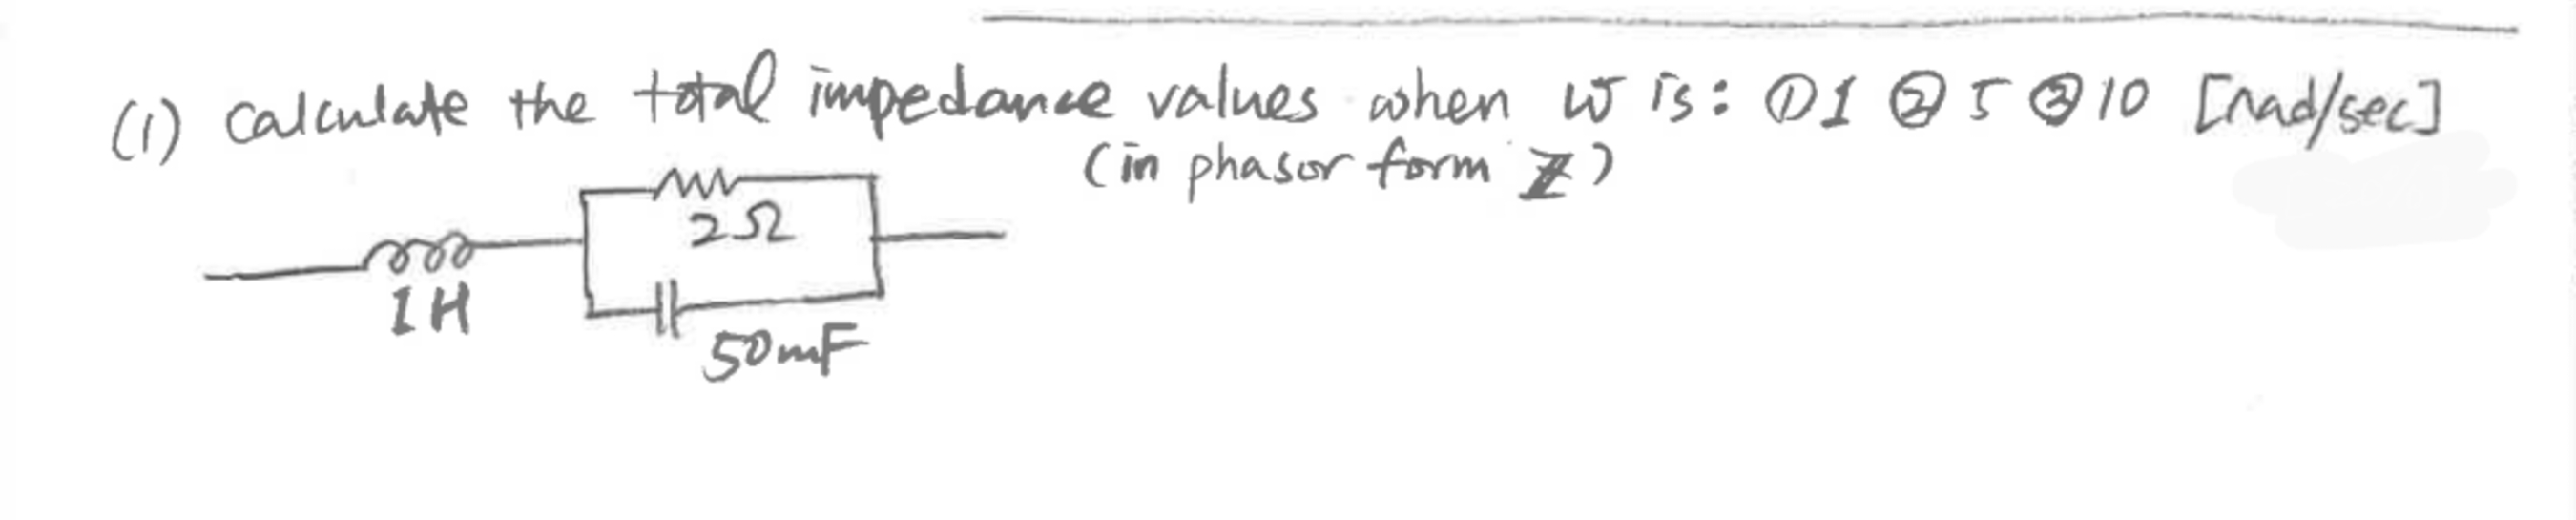 (1) Calculate the total impedance values when ω is: ① 1 ② 5 ③ 10 [rad/sec]
(in phasor form Z)
2Ω
1H
50mF